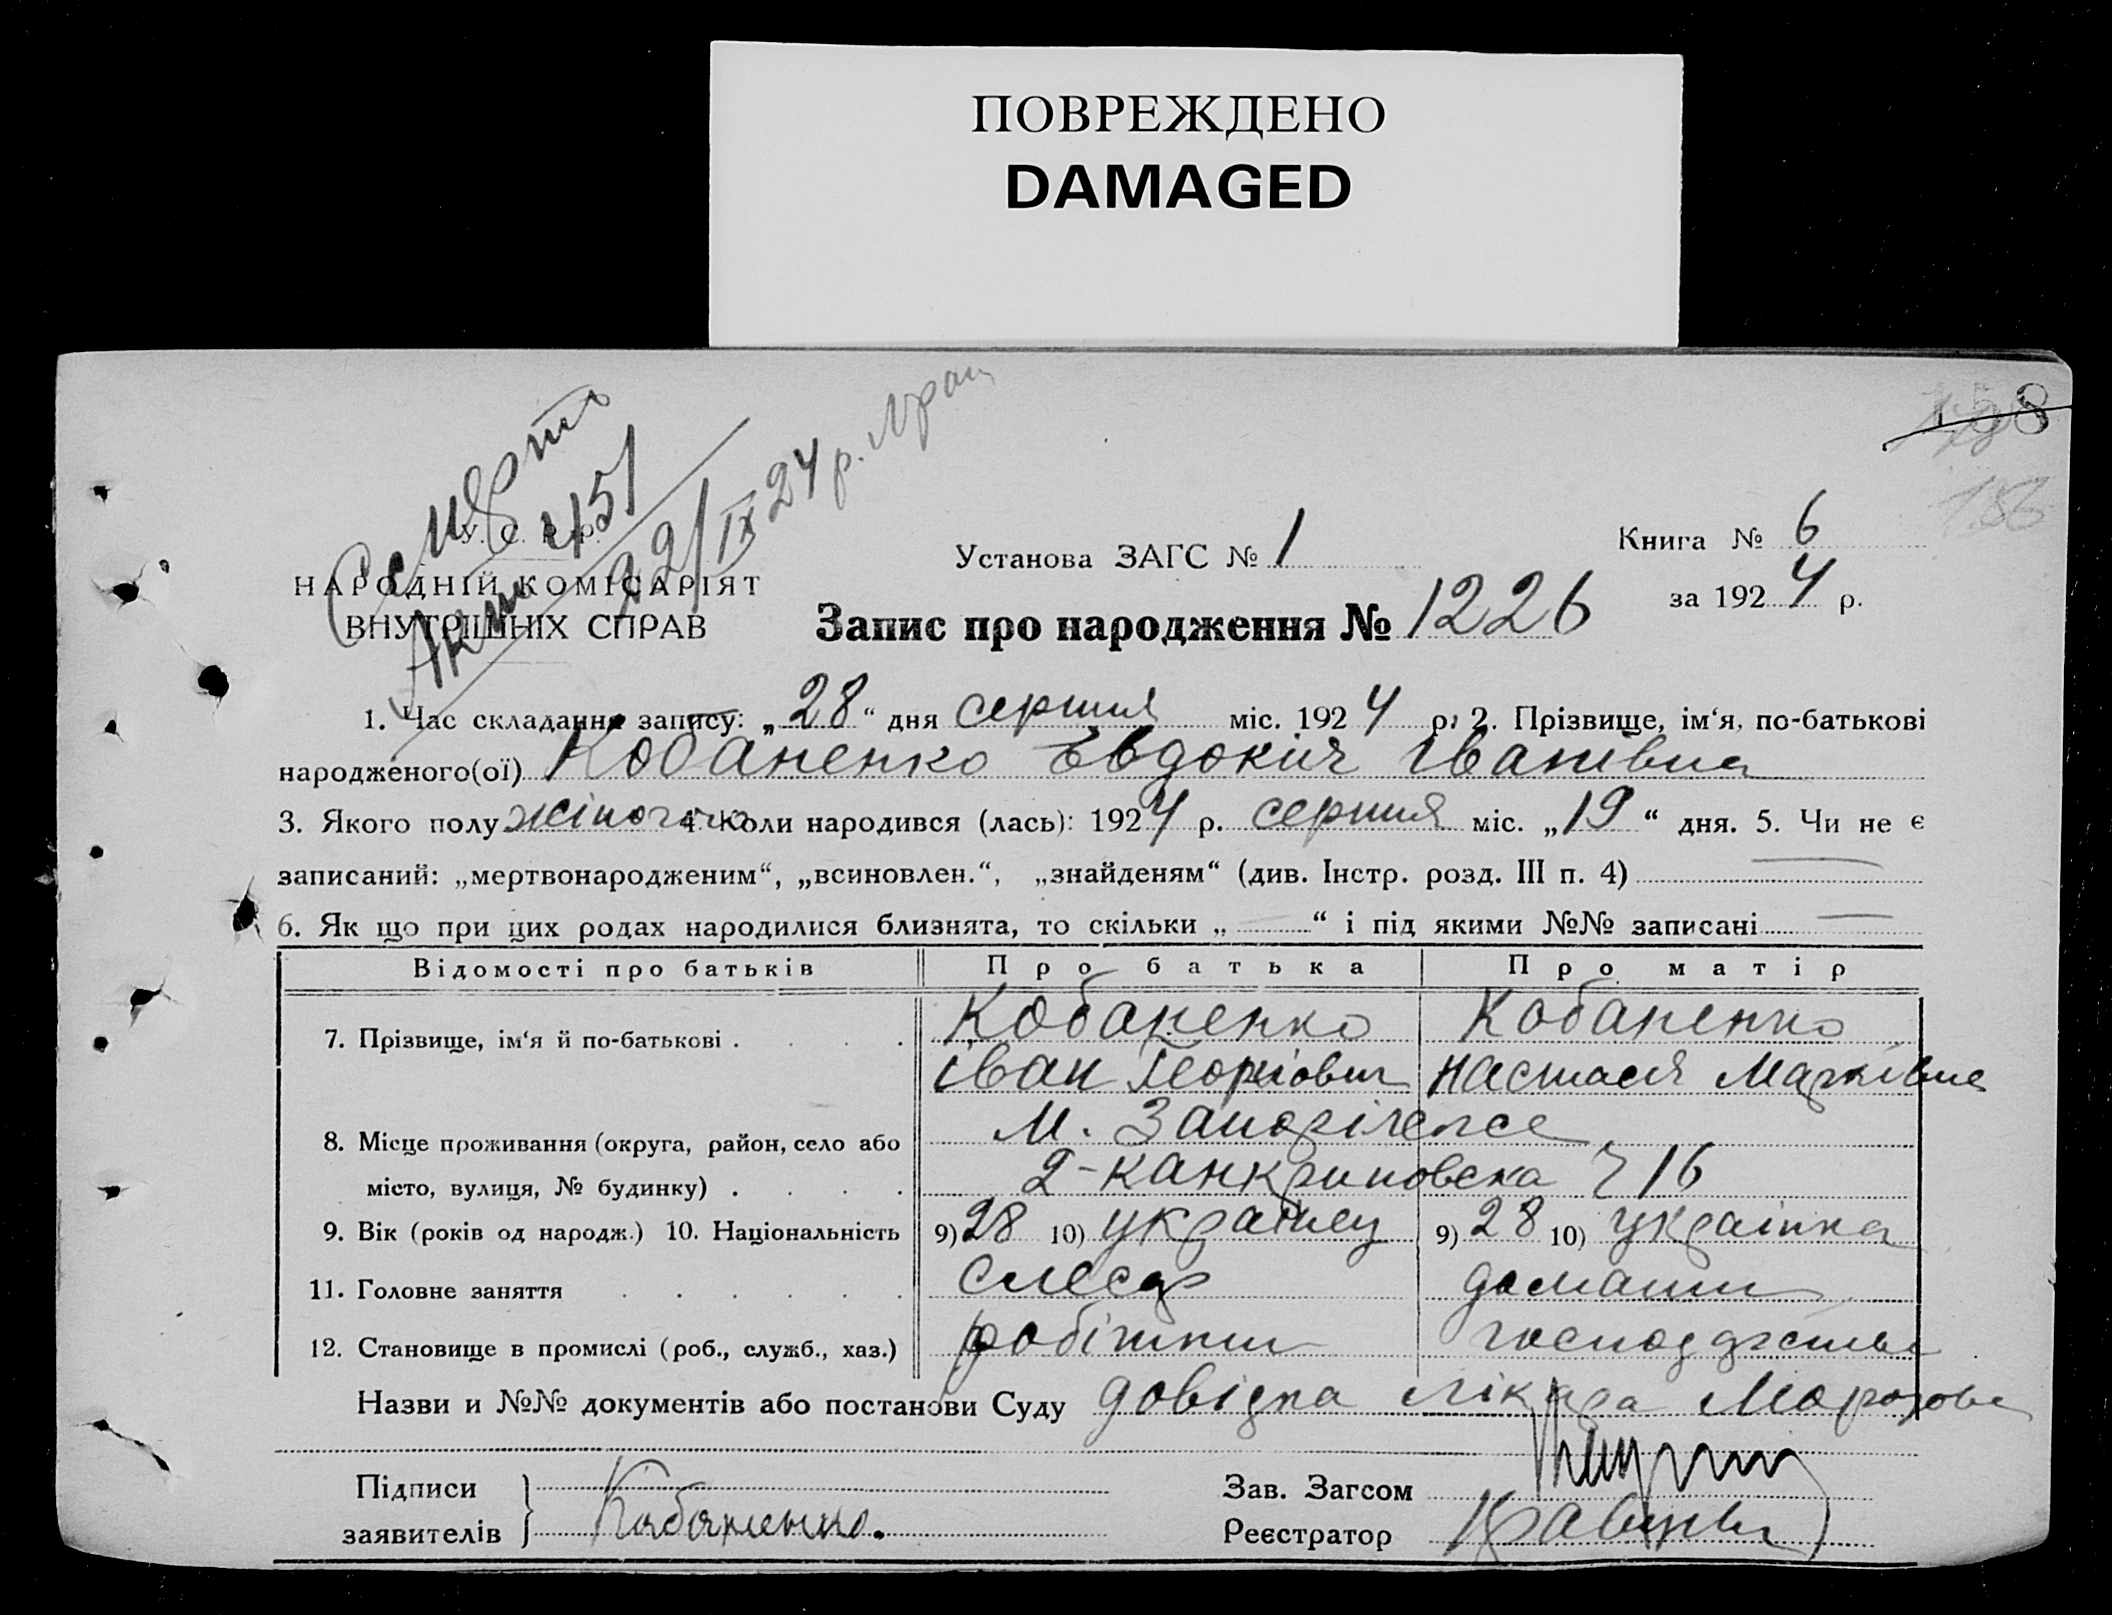 ПОВРЕЖДЕНО
DAMAGED
158
186
Смерть
Акт 451
22/IX 24 р.
У. С. Р. Р.
НАРОДНІЙ КОМІСАРІЯТ
ВНУТРІШНІХ СПРАВ
Установа ЗАГС № 1
Книга № 6
за 1924 р.
Запис про народження № 1226
1. Час складання запису: „28“ дня серпня міс. 1924 р. 2. Прізвище, ім‘я, по-батькові
народженого(ої) Кобаненко Евдокія Іванівна
3. Якого полу жіночого 4. Коли народився (лась): 1924 р. серпня міс. „19“ дня. 5. Чи не є
записаний: „мертвонародженим“, „всиновлен.“, „знайденям“ (див. Інстр. розд. III п. 4) —
6. Як що при цих родах народилися близнята, то скільки „—“ і під якими №№ записані —
Відомості про батьків Про батька Про матір
7. Прізвище, ім‘я й по-батькові . . . . Кобаненко Кобаненко
Іван Георгіович Настасія Марківна
8. Місце проживання (округа, район, село або м. Запоріжжє
місто, вулиця, № будинку) . . . . 2-Канкриновска ч 16
9. Вік (років од народж.) 10. Національність 9) 28 10) українец 9) 28 10) українка
11. Головне заняття . . . . . . слесар домашн
12. Становище в промислі (роб., служб., хаз.) робітник господарства
Назви и №№ документів або постанови Суду довідка лікара Морозова
Підписи
заявителів } Кабаненко.
Зав. Загсом
Реєстратор